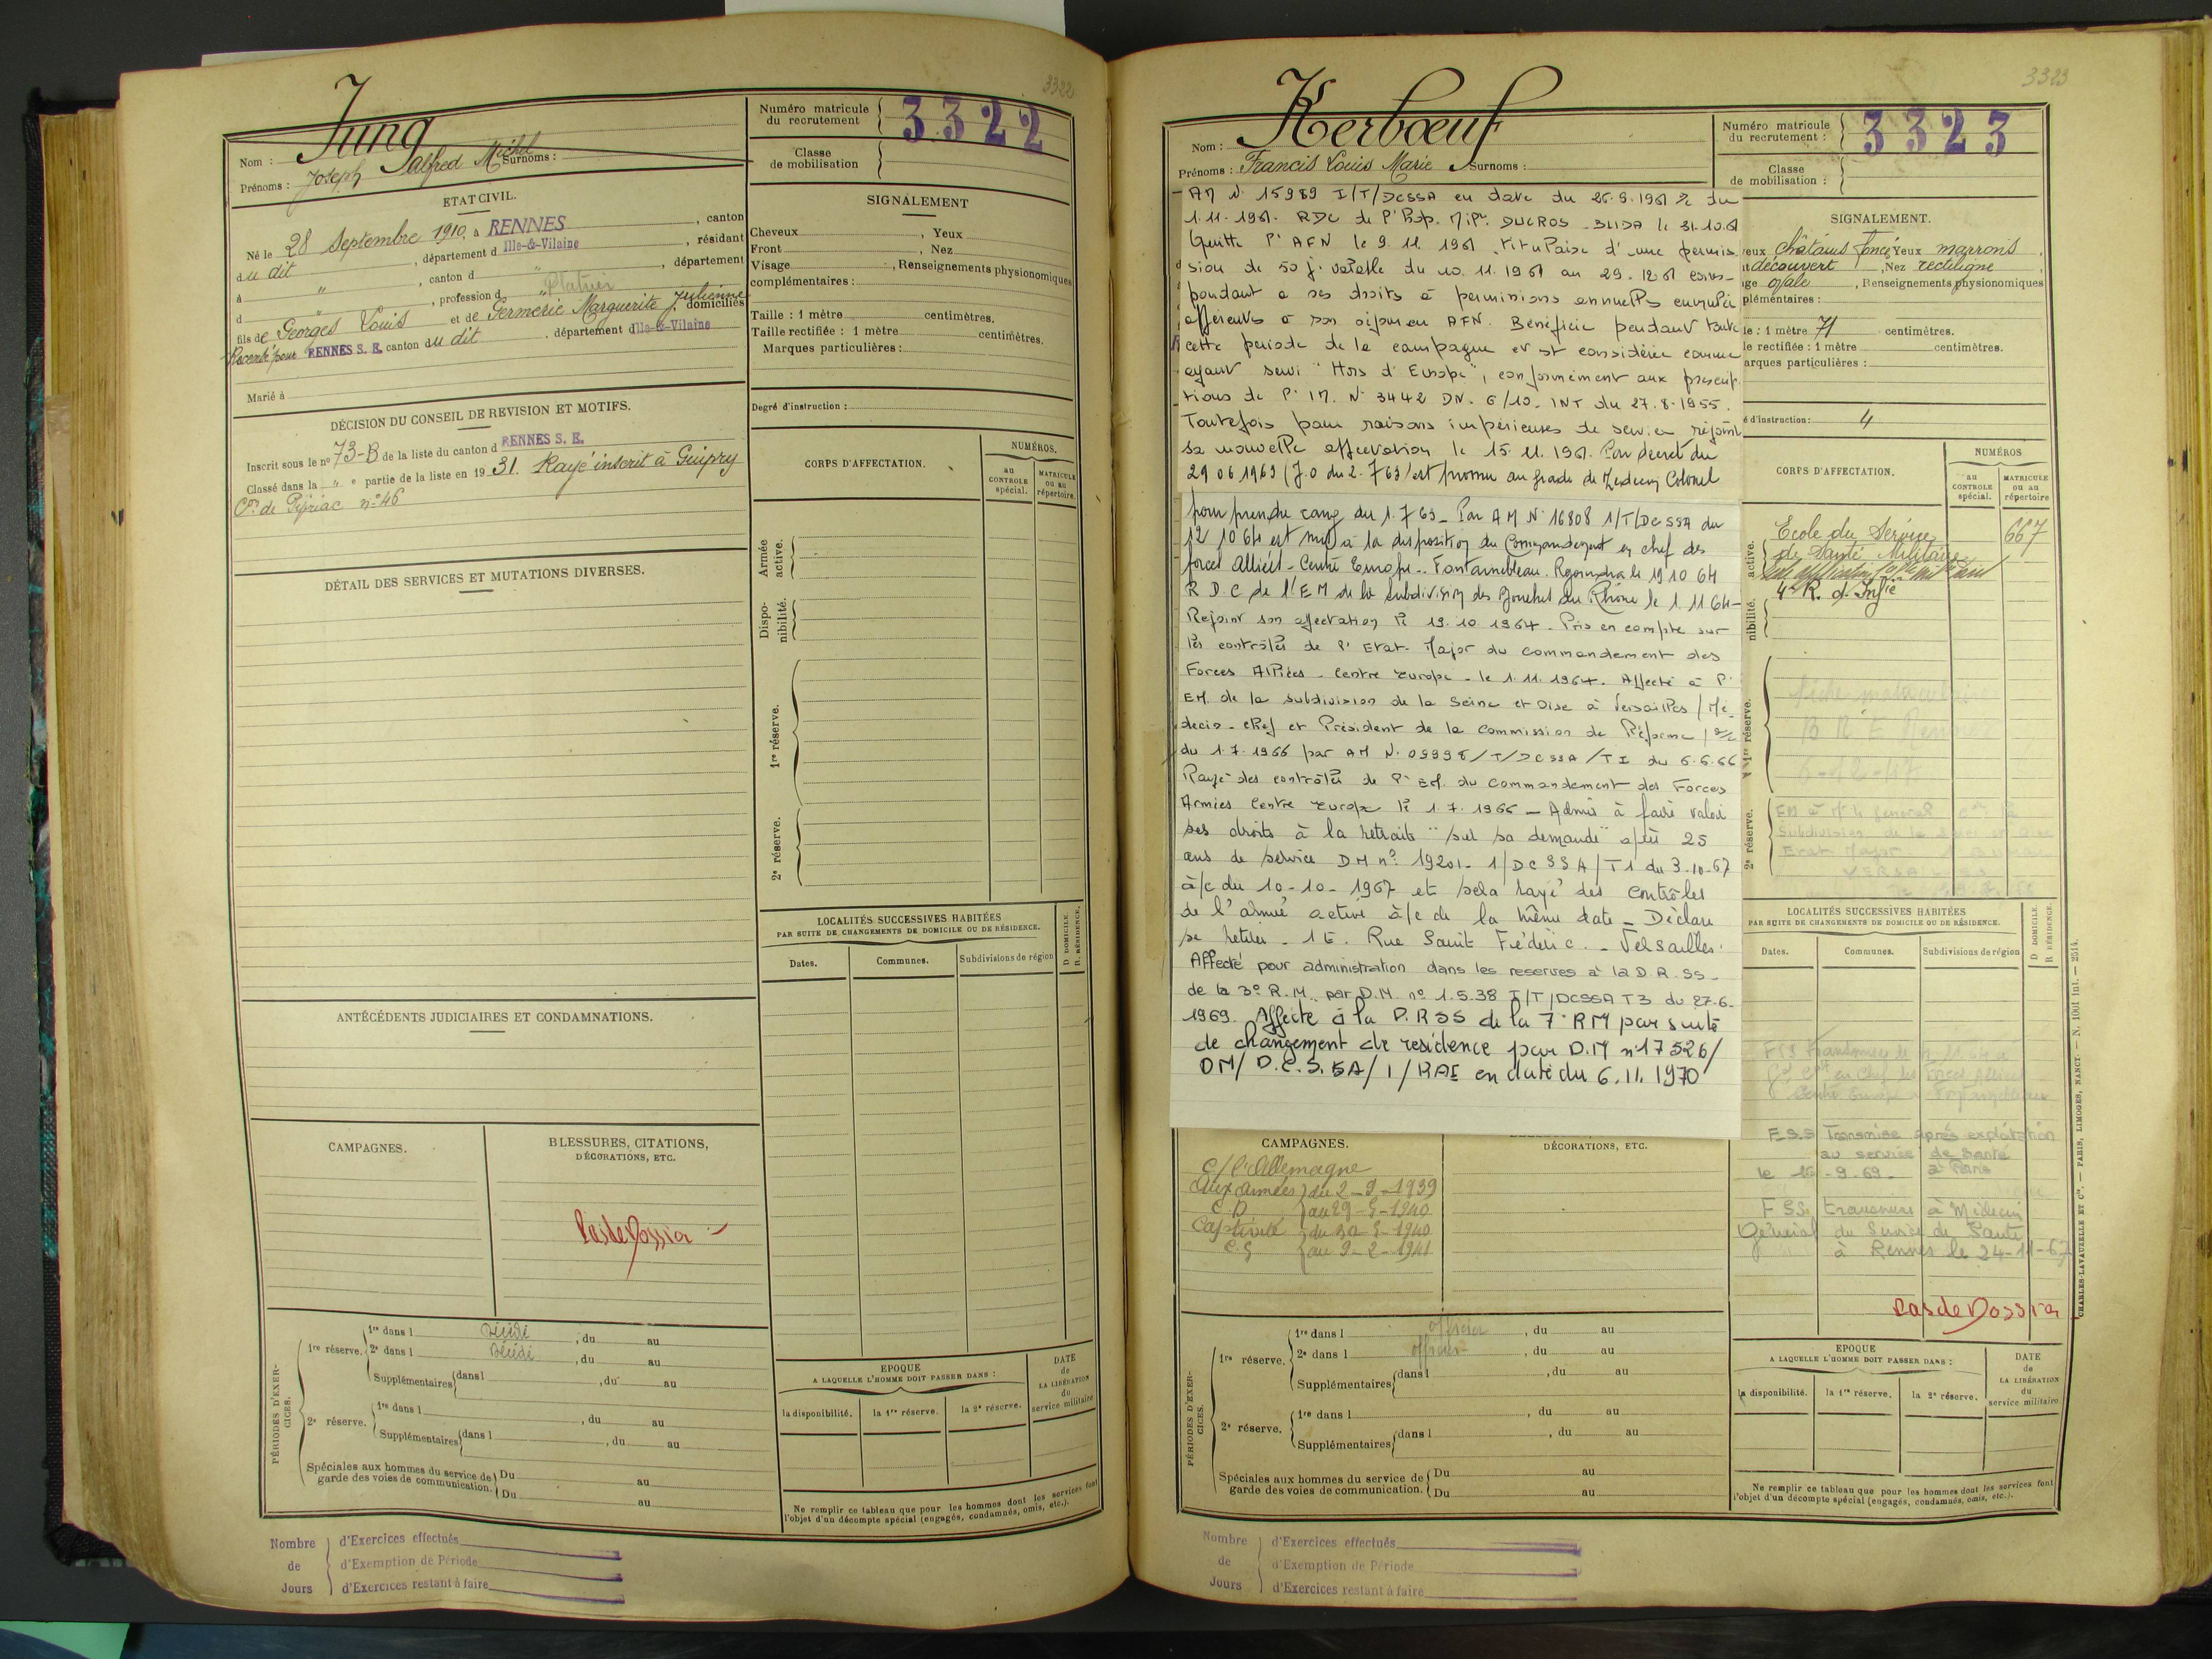 3322
Nom : Jung
Prénoms : Joseph Alfred Michel Surnoms :
Numéro matricule du recrutement 3322
Classe de mobilisation
ETAT CIVIL.
Né le 28 Septembre 1910, à RENNES, canton
du dit, département d Ille-&-Vilaine, résidant
à ", canton d ", département
d ", profession d Platrier
fils de Georges Louis et de Germerie Marguerite Julienne domiciliés
Recensé pour RENNES S. E. canton du dit, département d Ille-&-Vilaine
Marié à
DÉCISION DU CONSEIL DE REVISION ET MOTIFS.
Inscrit sous le nº 73-B de la liste du canton d RENNES S. E.
Classé dans la " e partie de la liste en 1931. Rayé inscrit à Guipry
Con de Pipriac nº 46
DÉTAIL DES SERVICES ET MUTATIONS DIVERSES.
ANTÉCÉDENTS JUDICIAIRES ET CONDAMNATIONS.
CAMPAGNES.
BLESSURES, CITATIONS,
DÉCORATIONS, ETC.
Pas de Dossier
PÉRIODES D'EXERCICES.
1re réserve. 1re dans l Décédé, du au
2e dans l Décédé, du au
Supplémentaires dans l , du au
2e réserve. 1re dans l , du au
Supplémentaires dans l , du au
Spéciales aux hommes du service de garde des voies de communication. Du au
Du au
SIGNALEMENT
Cheveux , Yeux
Front , Nez
Visage , Renseignements physionomiques
complémentaires :
Taille : 1 mètre centimètres.
Taille rectifiée : 1 mètre centimètres.
Marques particulières :
Degré d'instruction :
CORPS D'AFFECTATION.
NUMÉROS.
au CONTROLE spécial.
MATRICULE ou au répertoire.
Armée active.
Disponibilité.
1re réserve.
2e réserve.
LOCALITÉS SUCCESSIVES HABITÉES
PAR SUITE DE CHANGEMENTS DE DOMICILE OU DE RÉSIDENCE.
D DOMICILE.
R RÉSIDENCE.
Dates. Communes. Subdivisions de région
EPOQUE
A LAQUELLE L'HOMME DOIT PASSER DANS :
la disponibilité. la 1re réserve. la 2e réserve.
DATE de LA LIBÉRATION du service militaire
Ne remplir ce tableau que pour les hommes dont les services font
l'objet d'un décompte spécial (engagés, condamnés, omis, etc.).
Nombre de Jours
d'Exercices effectués
d'Exemption de Période
d'Exercices restant à faire
3323
Nom : Kerbœuf
Prénoms : Francis Louis Marie Surnoms :
Numéro matricule du recrutement : 3323
Classe de mobilisation :
AM Nº 15989 I/T/DCSSA en date du 26.9.1961 %c du
1.11.1961. RDC de l'Hop. Mire DUCROS BLIDA le 31.10.61
Quitte l'AFN le 9.11.1961 titulaire d'une permis
sion de 50 j. valable du 10.11.1961 au 29.12.61 corres-
pondant a ses droits à permissions annuelles
afférents à son séjour en AFN. Bénéficie pendant toute
cette période de la campagne et est considérée comme
ayant servi "Hors d'Europe", conformément aux prescrip
tions de l'IM. Nº 3442 DN. 6/10. INT du 27.8.1955.
Toutefois pour raisons impérieuses de service rejoint
sa nouvelle affectation le 15.11.1961. Par décret du
29 06 1963 (J.O du 2.7 63) est promu au grade de Médecin Colonel
pour prendre rang du 1.7 63 - Par AM Nº 16808 1/T/DCSSA du
12 10 64 est mis à la disposition du Commandement en chef des
forces Alliées - Centre Europe - Fontainebleau. Rejoindra le 19 10 64
R.D.C de l'EM de la Subdivision des Bouches du Rhône le 1 11 64 -
Rejoint son affectation le 19.10.1964. Pris en compte sur
les contrôles de l'Etat-Major du commandement des
Forces Alliées - Centre Europe - le 1.11.1964. Affecté à l'
EM de la subdivision de la Seine et Oise à Versailles (Mé-
decin-chef et Président de la Commission de Réforme) a/c
du 1.7.1966 par AM Nº 09998/T/DCSSA/TI du 6.6.66
Rayé des contrôles de l'EM. du commandement des Forces
Armées Centre Europe le 1.7.1966 - Admis à faire valoir
ses droits à la retraite "sur sa demande" après 25
ans de service DM nº 19201-1/DCSSA/T1 du 3-10-67
à/c du 10-10-1967 et sera rayé des contrôles
de l'armée active à/c de la même date - Déclare
se retirer - 1 E. Rue Saint Frédéric - Versailles.
Affecté pour administration dans les reserves à la D.R.SS-
de la 3e R.M. par D.M. nº 1.5.38 I/T/DCSSA T3 du 27-6-
1969. Affecté à la D.RSS de la 7e RM par suite
de changement de residence par D.M nº 17526/
DM/D.C.S.SA/1/RAE en date du 6.11.1970
CAMPAGNES.
DÉCORATIONS, ETC.
C/ l'Allemagne
Aux armées du 2-9-1939
C.D au 29-5-1940
Captivité du 30-5-1940
C.S au 9-2-1941
PÉRIODES D'EXERCICES.
1re réserve. 1re dans l officier, du au
2e dans l officier, du au
Supplémentaires dans l , du au
2e réserve. 1re dans l , du au
Supplémentaires dans l , du au
Spéciales aux hommes du service de garde des voies de communication. Du au
Du au
SIGNALEMENT.
eux châtains foncé Yeux marrons
t découvert, Nez rectiligne
ge ovale, Renseignements physionomiques
plémentaires :
le : 1 mètre 71 centimètres.
le rectifiée : 1 mètre centimètres.
arques particulières :
é d'instruction : 4
CORPS D'AFFECTATION.
NUMÉROS
au CONTROLE spécial.
MATRICULE ou au répertoire
active.
Ecole du Service 667
de Santé Militaire
4e R. d'Infie
nibilité.
1re réserve.
Fiche matriculaire
B R E Rennes
6-12-47
2e réserve.
Subdivision de la
Etat Major
VERSAILLES
LOCALITÉS SUCCESSIVES HABITÉES
PAR SUITE DE CHANGEMENTS DE DOMICILE OU DE RÉSIDENCE.
D DOMICILE.
R RÉSIDENCE.
Dates. Communes. Subdivisions de région
en Chef des Forces Alliées
Centre Europe à Fontainebleau
F.S.S Transmise après exploitation
au service de Santé
le 16-9-69- à Paris
F SS. transmis à Médecin
Général du Service de Santé
à Rennes le 24-11-67
Pas de Dossier
EPOQUE
A LAQUELLE L'HOMME DOIT PASSER DANS :
la disponibilité. la 1re réserve. la 2e réserve.
DATE de LA LIBÉRATION du service militaire
Ne remplir ce tableau que pour les hommes dont les services font
l'objet d'un décompte spécial (engagés, condamnés, omis, etc.).
CHARLES-LAVAUZELLE ET Cie. — PARIS, LIMOGES, NANCY. — N. 1001 Int. — 2514.
Nombre de Jours
d'Exercices effectués
d'Exemption de Période
d'Exercices restant à faire